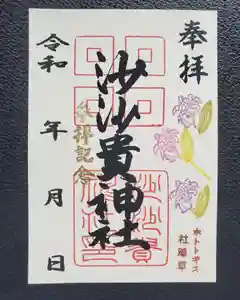 奉拝
沙沙貴神社
参拝記念
令和 年 月 日
ホトトギス
社蹄草